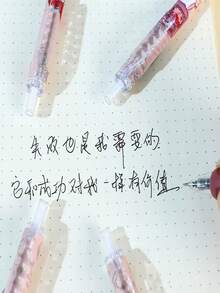 失败也是我需要的
它和成功对我一样有价值